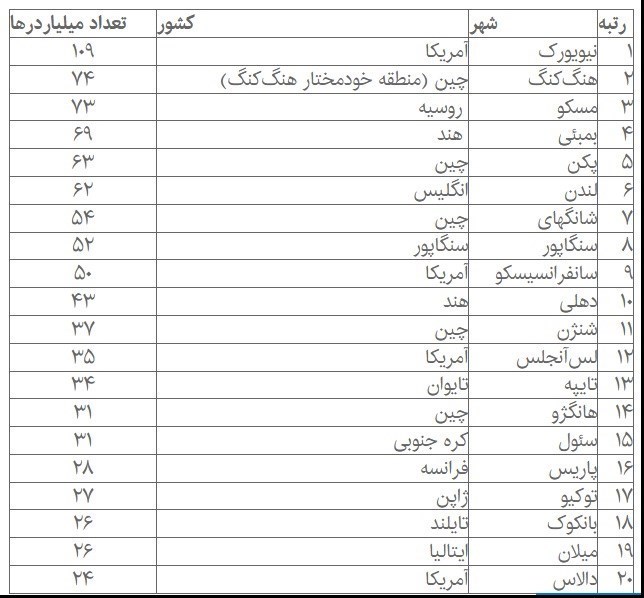 رتبه شهر کشور تعداد میلیاردرها
۱ نیویورک آمریکا ۱۰۹
۲ هنگ‌کنگ چین (منطقه خودمختار هنگ‌کنگ) ۷۴
۳ مسکو روسیه ۷۳
۴ بمبئی هند ۶۹
۵ پکن چین ۶۳
۶ لندن انگلیس ۶۲
۷ شانگهای چین ۵۴
۸ سنگاپور سنگاپور ۵۲
۹ سانفرانسیسکو آمریکا ۵۰
۱۰ دهلی هند ۴۳
۱۱ شنژن چین ۳۷
۱۲ لس‌آنجلس آمریکا ۳۵
۱۳ تایپه تایوان ۳۴
۱۴ هانگژو چین ۳۱
۱۵ سئول کره جنوبی ۳۱
۱۶ پاریس فرانسه ۲۸
۱۷ توکیو ژاپن ۲۷
۱۸ بانکوک تایلند ۲۶
۱۹ میلان ایتالیا ۲۶
۲۰ دالاس آمریکا ۲۴